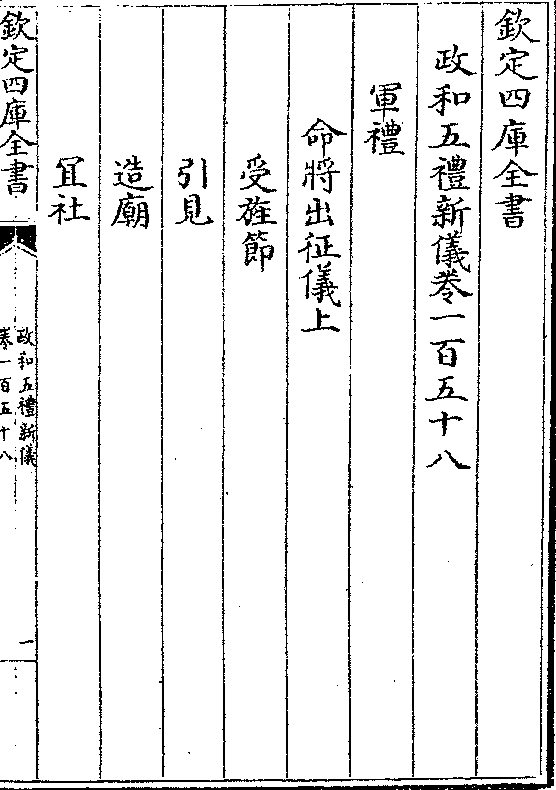 欽定四庫全書
政和五禮新儀卷一百五十八
軍禮
命將出征儀上
受旌節
引見
造廟
冝社
欽定四庫全書
政和五禮新儀
卷一百五十八
一